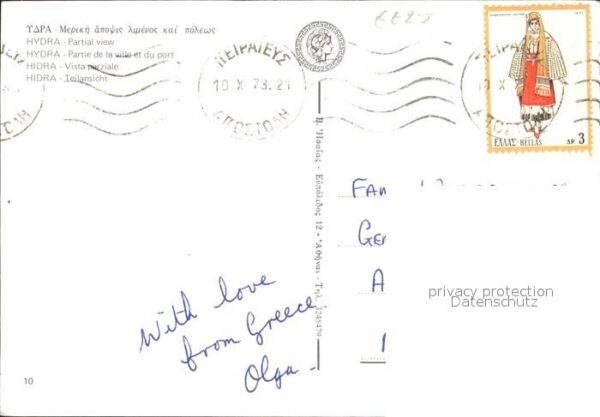 ΥΔΡΑ - Μερικὴ ἄποψις λιμένος καὶ πόλεως
HYDRA - Partial view
HYDRA - Partie de la ville et du port
HIDRA - Vista parziale
HIDRA - Teilansicht
ΕΕ25
ΠΕΙΡΑΙΕΥΣ
10 X 73.21
ΑΠΟΣΤΟΛΗ
ΕΛΛΑΣ-HELLAS ΔΡ 3
Ἀθῆναι - Τηλ. 3245479
privacy protection
Datenschutz
With love
from Greece
Olga -
10